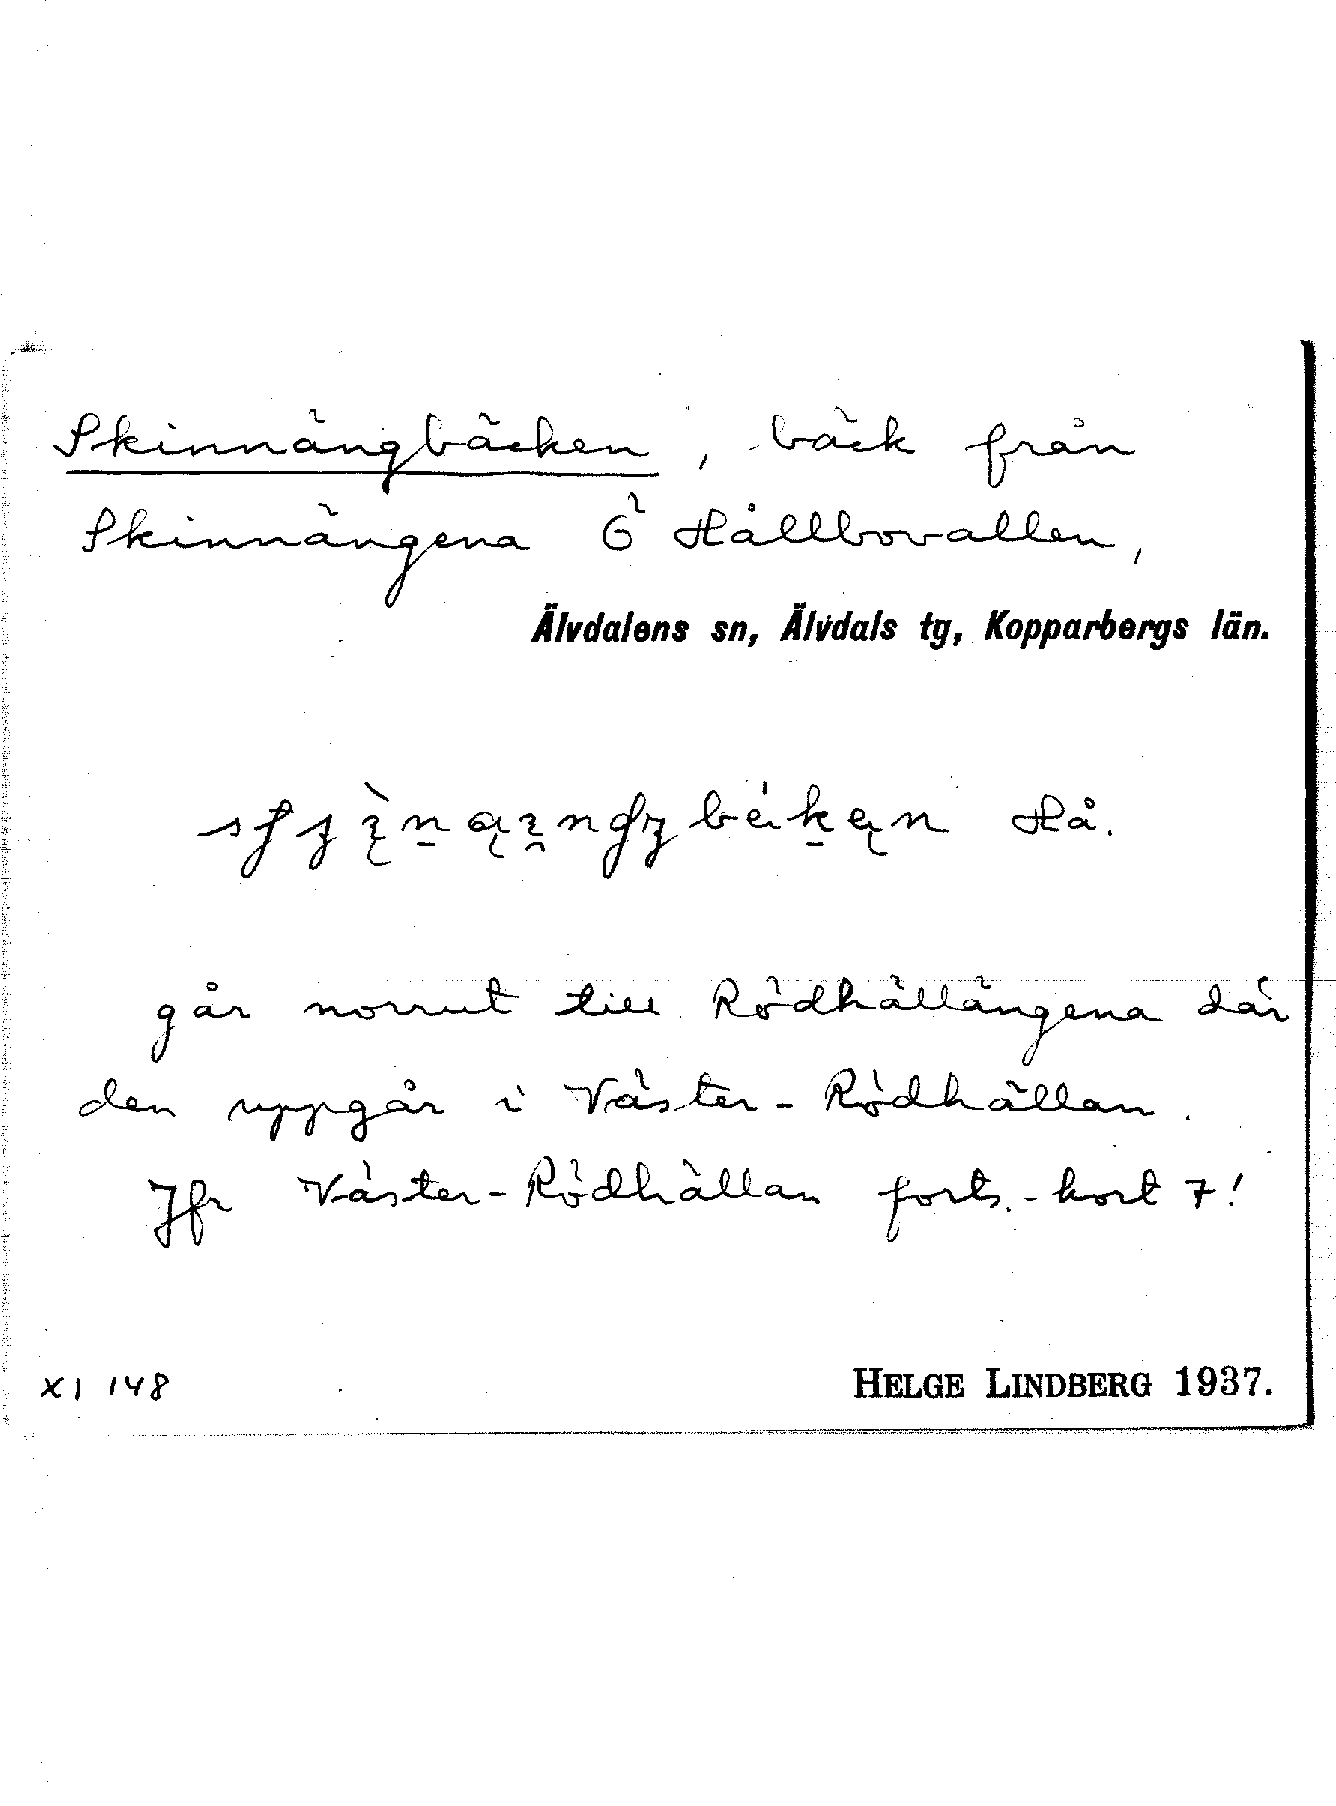 Skinnängbäcken, bäck från
Skinnängena Ö Hållbovallen,
Älvdalens sn, Älvdals tg, Kopparbergs län.
Hå.
går norrut till Rödhällängena där
den uppgår i Väster-Rödhällan.
Jfr Väster-Rödhällan forts.-kort 7!
XI 148
HELGE LINDBERG 1937.